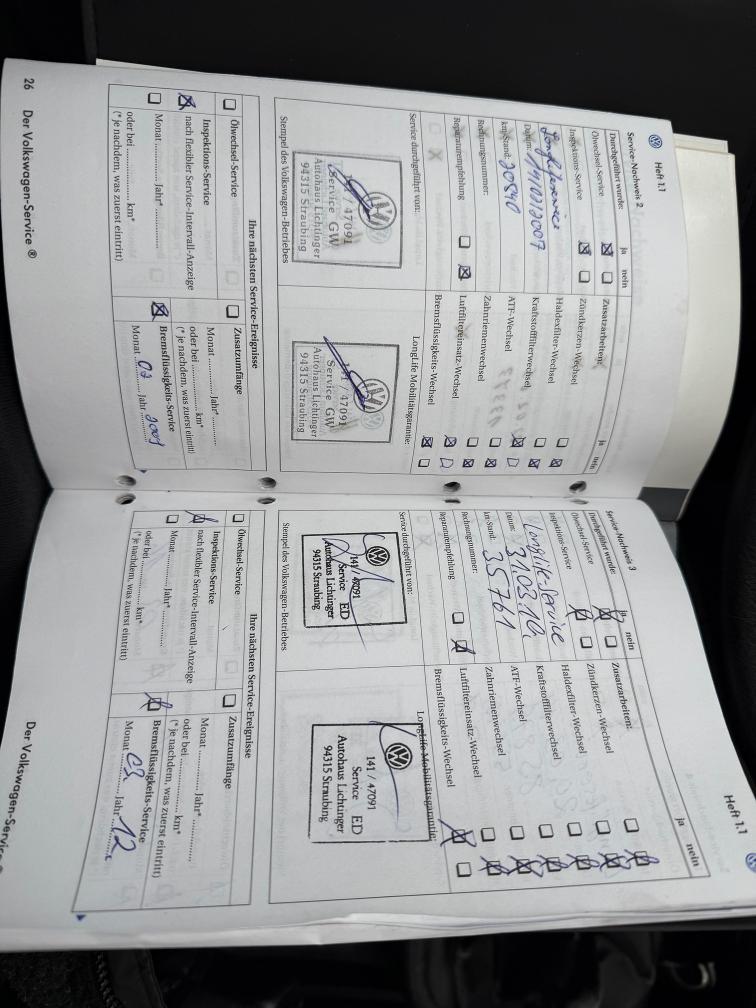 Heft 1.1
Service-Nachweis 2
Durchgeführt wurde: ja nein
Ölwechsel-Service
Inspektions-Service
Longlifeservice
Datum:
km-Stand: 20540
Rechnungsnummer:
Reparaturempfehlung
Service durchgeführt von:
141 / 47091
Service GW
Autohaus Lichtinger
94315 Straubing
Stempel des Volkswagen-Betriebes
Zusatzarbeiten: ja nein
Zündkerzen-Wechsel
Haldexfilter-Wechsel
Kraftstofffilterwechsel
ATF-Wechsel
Zahnriemenwechsel
Luftfiltereinsatz-Wechsel
Bremsflüssigkeits-Wechsel
LongLife Mobilitätsgarantie:
141 / 47091
Service GW
Autohaus Lichtinger
94315 Straubing
Ihre nächsten Service-Ereignisse
Ölwechsel-Service
Inspektions-Service
nach flexibler Service-Intervall-Anzeige
Monat ............ Jahr* ............
oder bei ............ km*
(* je nachdem, was zuerst eintritt)
Zusatzumfänge
Monat ............ Jahr* ............
oder bei ............ km*
(* je nachdem, was zuerst eintritt)
Bremsflüssigkeits-Service
Monat 02 Jahr 2009
26 Der Volkswagen-Service ®
Heft 1.1
Service-Nachweis 3
Durchgeführt wurde: ja nein
Ölwechsel-Service
Inspektions-Service
Longlife-Service
Datum: 31.03.10.
km-Stand: 35761
Rechnungsnummer:
Reparaturempfehlung
Service durchgeführt von:
141 / 47091
Service ED
Autohaus Lichtinger
94315 Straubing
Stempel des Volkswagen-Betriebes
Zusatzarbeiten: ja nein
Zündkerzen-Wechsel
Haldexfilter-Wechsel
Kraftstofffilterwechsel
ATF-Wechsel
Zahnriemenwechsel
Luftfiltereinsatz-Wechsel
Bremsflüssigkeits-Wechsel
LongLife Mobilitätsgarantie:
141 / 47091
Service ED
Autohaus Lichtinger
94315 Straubing
Ihre nächsten Service-Ereignisse
Ölwechsel-Service
Inspektions-Service
nach flexibler Service-Intervall-Anzeige
Monat ............ Jahr* ............
oder bei ............ km*
(* je nachdem, was zuerst eintritt)
Zusatzumfänge
Monat ............ Jahr* ............
oder bei ............ km*
(* je nachdem, was zuerst eintritt)
Bremsflüssigkeits-Service
Monat 03 Jahr 12
Der Volkswagen-Service